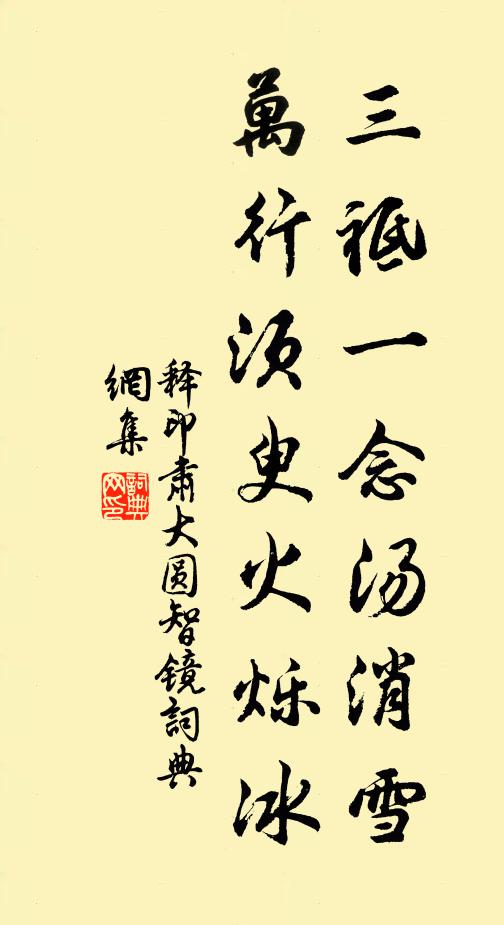 三祇一念汤消雪
萬行须臾火烁冰
释印肃大圆智镜詞典
網集
詞典
网印